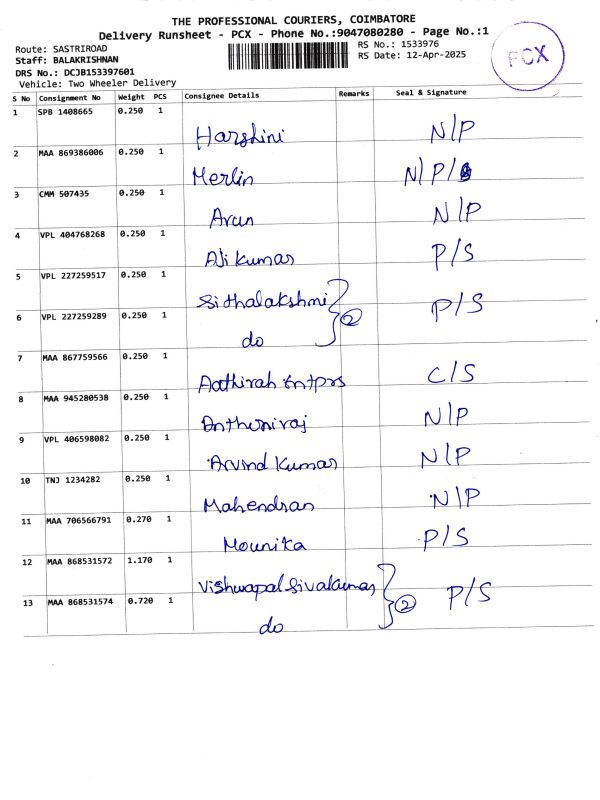 THE PROFESSIONAL COURIERS, COIMBATORE
Delivery Runsheet - PCX - Phone No.:9047080280 - Page No.:1
Route: SASTRIROAD
RS No.: 1533976
Staff: BALAKRISHNAN
RS Date: 12-Apr-2025
DRS No.: DCJB153397601
Vehicle: Two Wheeler Delivery
PCX
S No Consignment No Weight PCS Consignee Details Remarks Seal & Signature
1 SPB 1408665 0.250 1 Harshini N/P
2 MAA 869386006 0.250 1 Merlin N/P/
3 CMM 507435 0.250 1 Arun N/P
4 VPL 404768268 0.250 1 Aji kumar P/S
5 VPL 227259517 0.250 1 Sithalakshmi
6 VPL 227259289 0.250 1 do 2 P/S
7 MAA 867759566 0.250 1 Aathirah Entprs C/S
8 MAA 945280538 0.250 1 Anthoniraj N/P
9 VPL 406598082 0.250 1 Arvind Kumar N/P
10 TNJ 1234282 0.250 1 Mahendran N/P
11 MAA 706566791 0.270 1 Mounika P/S
12 MAA 868531572 1.170 1
13 MAA 868531574 0.720 1 do 2 P/S